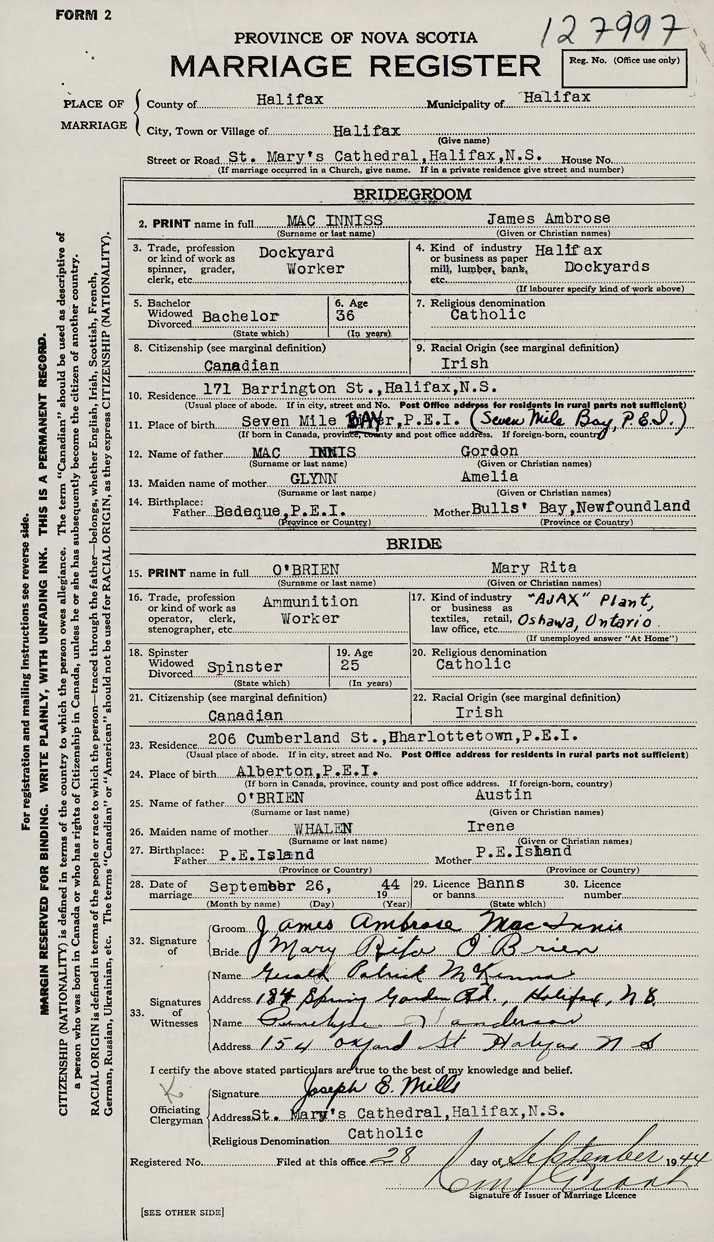 FORM 2
127997
PROVINCE OF NOVA SCOTIA
MARRIAGE REGISTER
Reg. No. (Office use only)
PLACE OF MARRIAGE
County of Halifax Municipality of Halifax
City, Town or Village of Halifax
(Give name)
Street or Road St. Mary's Cathedral, Halifax, N.S. House No.
(If marriage occurred in a Church, give name. If in a private residence give street and number)
BRIDEGROOM
2. PRINT name in full MAC INNISS James Ambrose
(Surname or last name) (Given or Christian names)
3. Trade, profession or kind of work as spinner, grader, clerk, etc. Dockyard Worker
4. Kind of industry or business as paper mill, lumber, bank, etc. Halifax Dockyards
(If labourer specify kind of work above)
5. Bachelor Widowed Divorced Bachelor
(State which)
6. Age 36
(In years)
7. Religious denomination
Catholic
8. Citizenship (see marginal definition)
Canadian
9. Racial Origin (see marginal definition)
Irish
10. Residence 171 Barrington St., Halifax, N.S.
(Usual place of abode. If in city, street and No. Post Office address for residents in rural parts not sufficient)
11. Place of birth Seven Mile BAY, P.E.I. (Seven Mile Bay, P.E.I.)
(If born in Canada, province, county and post office address. If foreign-born, country)
12. Name of father MAC INNIS Gordon
(Surname or last name) (Given or Christian names)
13. Maiden name of mother GLYNN Amelia
(Surname or last name) (Given or Christian names)
14. Birthplace: Father Bedeque, P.E.I. Mother Bulls' Bay, Newfoundland
(Province or Country) (Province or Country)
BRIDE
15. PRINT name in full O'BRIEN Mary Rita
(Surname or last name) (Given or Christian names)
16. Trade, profession or kind of work as operator, clerk, stenographer, etc. Ammunition Worker
17. Kind of industry or business as textiles, retail, law office, etc. "AJAX" Plant, Oshawa, Ontario.
(If unemployed answer "At Home")
18. Spinster Widowed Divorced Spinster
(State which)
19. Age 25
(In years)
20. Religious denomination
Catholic
21. Citizenship (see marginal definition)
Canadian
22. Racial Origin (see marginal definition)
Irish
23. Residence 206 Cumberland St., Hharlottetown, P.E.I.
(Usual place of abode. If in city, street and No. Post Office address for residents in rural parts not sufficient)
24. Place of birth Alberton, P.E.I.
(If born in Canada, province, county and post office address. If foreign-born, country)
25. Name of father O'BRIEN Austin
(Surname or last name) (Given or Christian names)
26. Maiden name of mother WHALEN Irene
(Surname or last name) (Given or Christian names)
27. Birthplace: Father P.E.Island Mother P.E.Island
(Province or Country) (Province or Country)
28. Date of marriage September 26, 1944
(Month by name) (Day) (Year)
29. Licence or banns Banns
(State which)
30. Licence number
32. Signature of
Groom James Ambrose Mac Innis
Bride Mary Rita O'Brien
33. Signatures of Witnesses
Name Gerald Patrick McKenna
Address 184 Spring Garden Rd., Halifax, N S.
Name
Address 154 Oxford St Halifax N S
I certify the above stated particulars are true to the best of my knowledge and belief.
Officiating Clergyman
Signature Joseph E. Mills
Address St. Mary's Cathedral, Halifax, N.S.
Religious Denomination Catholic
Registered No. Filed at this office 28 day of September 1944
Signature of Issuer of Marriage Licence
[SEE OTHER SIDE]
For registration and mailing instructions see reverse side.
MARGIN RESERVED FOR BINDING. WRITE PLAINLY, WITH UNFADING INK. THIS IS A PERMANENT RECORD.
CITIZENSHIP (NATIONALITY) is defined in terms of the country to which the person owes allegiance. The term "Canadian" should be used as descriptive of
a person who was born in Canada or who has rights of Citizenship in Canada, unless he or she has subsequently become the citizen of another country.
RACIAL ORIGIN is defined in terms of the people or race to which the person—traced through the father—belongs, whether English, Irish, Scottish, French,
German, Russian, Ukrainian, etc. The terms "Canadian" or "American" should not be used for RACIAL ORIGIN, as they express CITIZENSHIP (NATIONALITY).